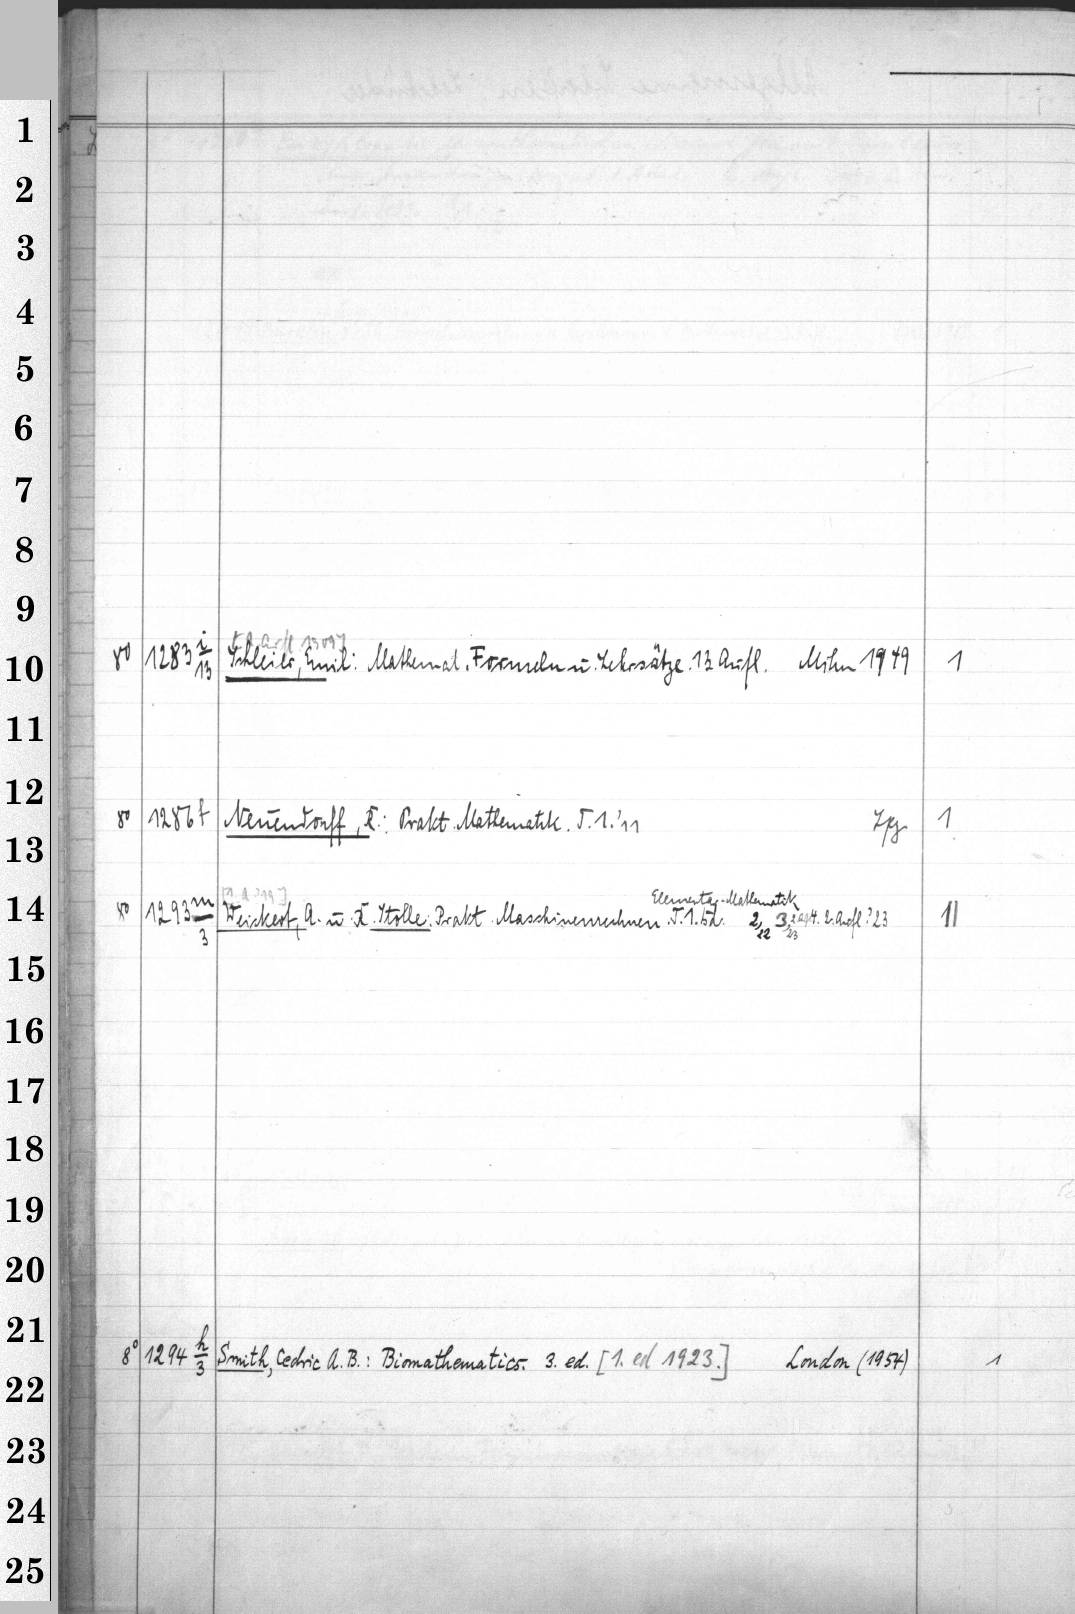 1
2
3
4
5
6
7
8
9
10
11
12
13
14
15
16
17
18
19
20
21
22
23
24
25
8° 1283 i/13 Schleier, Emil: Mathemat. Formeln u. Lehrsätze. 13. Aufl. Mchn 1949 1
8° 1286 f Neuendorff, R.: Prakt. Mathematik. T. 1. '11 Lpz. 1
Elementar-Mathematik
8° 1293 m/3 Weickert, A. u. R. Stolle: Prakt. Maschinenrechnen. T. 1. 2. Aufl. '23 11
8° 1294 h/3 Smith, Cedric A.B.: Biomathematics. 3. ed. [1. ed 1923.] London (1954) 1